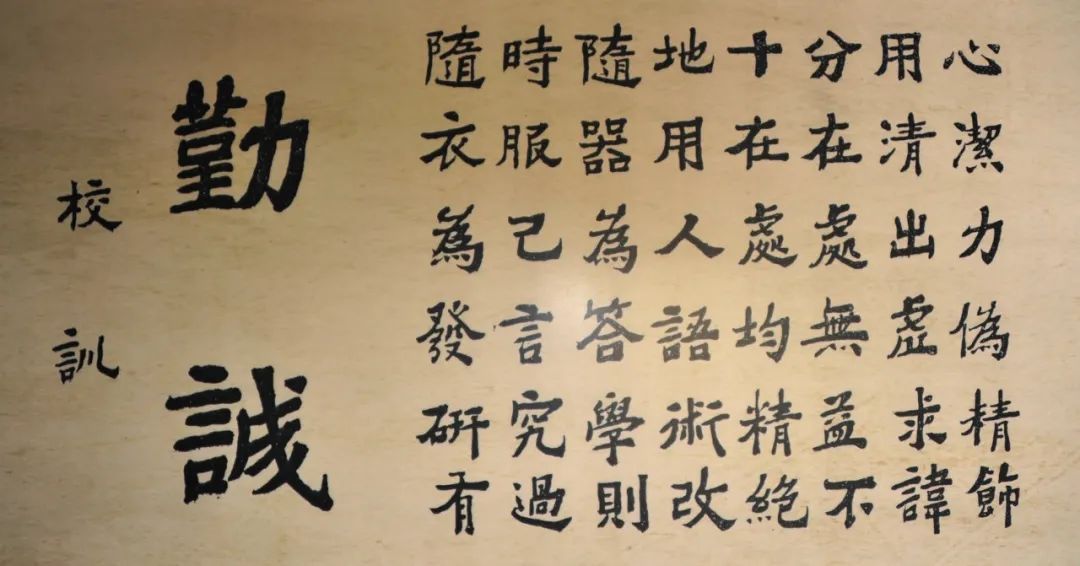 校訓
勤誠
隨時隨地十分用心
衣服器用在在清潔
為己為人處處出力
發言答語均無虛偽
研究學術精益求精
有過則改絕不諱飾